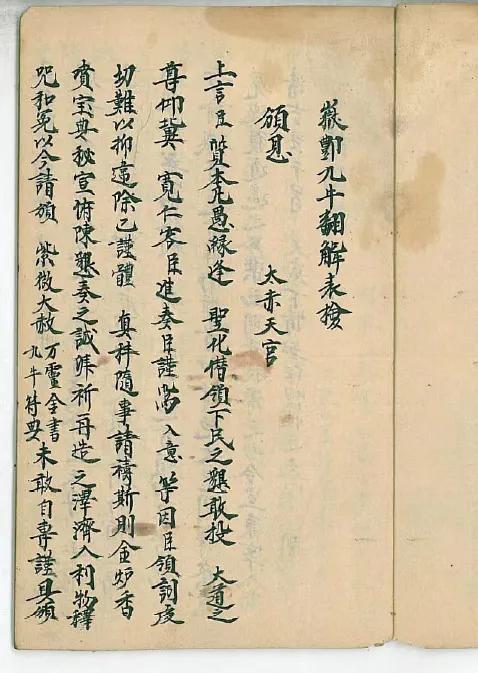 嶽酆九牛翻解表檢
頒恩
太赤天官
上言臣質本凡愚緣逢 聖化僭領下民之懇敢投 大道之
尊仰冀 寬仁容臣進奏臣謹為入意 等因臣領詞虔
切難以抑違除已謹體 真科隨事請禱斯則金炉香
賁宗典秘宣俯陳懇奏之誠冞祈再造之澤濟人利物釋
咒和冤以今請頒 紫微大赦 万靈全書 九牛符典 未敢自專謹具頒